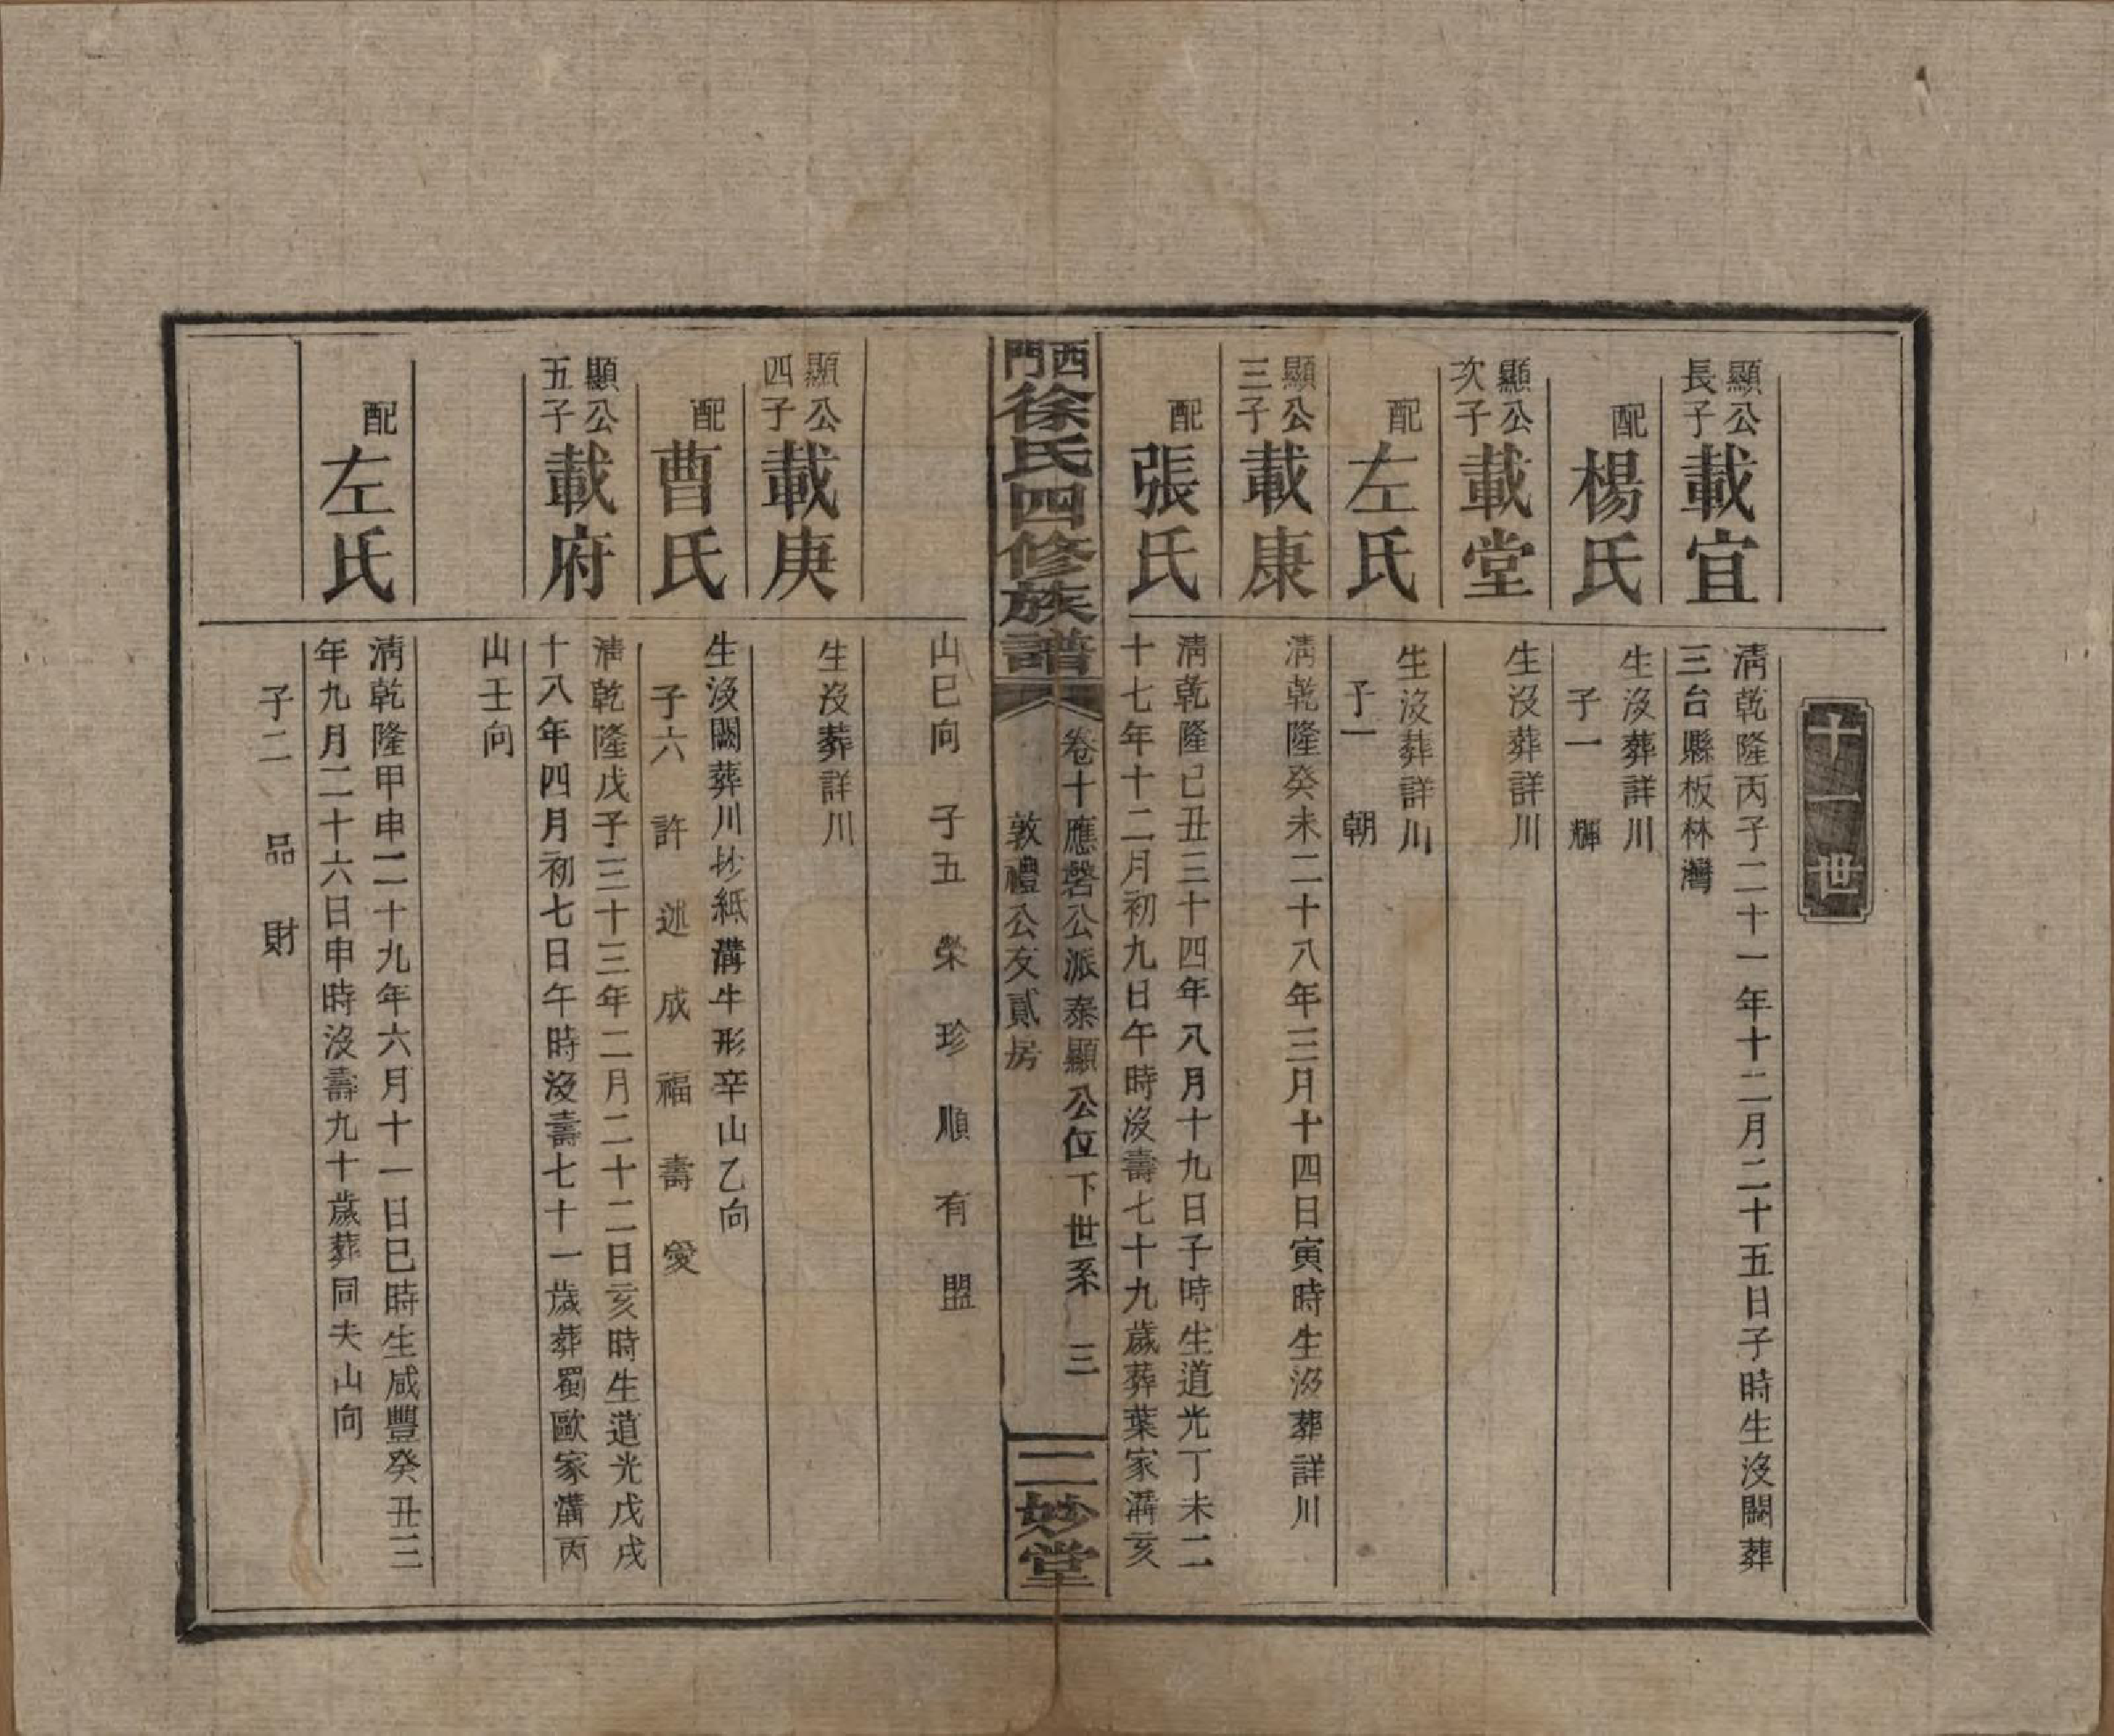 十一世
顯公
長子
載宜
清乾隆丙子二十一年十二月二十五日子時生沒闕葬
三台縣板林灣
配
楊氏
生沒葬詳川
子一　輝
顯公
次子
載堂
生沒葬詳川
配
左氏
生沒葬詳川
子一　朝
顯公
三子
載康
清乾隆癸未二十八年三月十四日寅時生沒葬詳川
配
張氏
清乾隆己丑三十四年八月十九日子時生道光丁未二
十七年十二月初九日午時沒壽七十九歲葬葉家溝亥
西門徐氏四修族譜
卷十應磬公派泰顯公位下世系　三
敦禮公友貳房
二妙堂
山巳向　子五　榮　珍　順　有　盟
顯公
四子
載庚
生沒葬詳川
配
曹氏
生沒闕葬川抄紙溝牛形辛山乙向
子六　許　述　成　福　壽　愛
顯公
五子
載府
清乾隆戊子三十三年二月二十二日亥時生道光戊戌
十八年四月初七日午時沒壽七十一歲葬蜀歐家溝丙
山壬向
配
左氏
清乾隆甲申二十九年六月十一日巳時生咸豐癸丑三
年九月二十六日申時沒壽九十歲葬同夫山向
子二　品　財